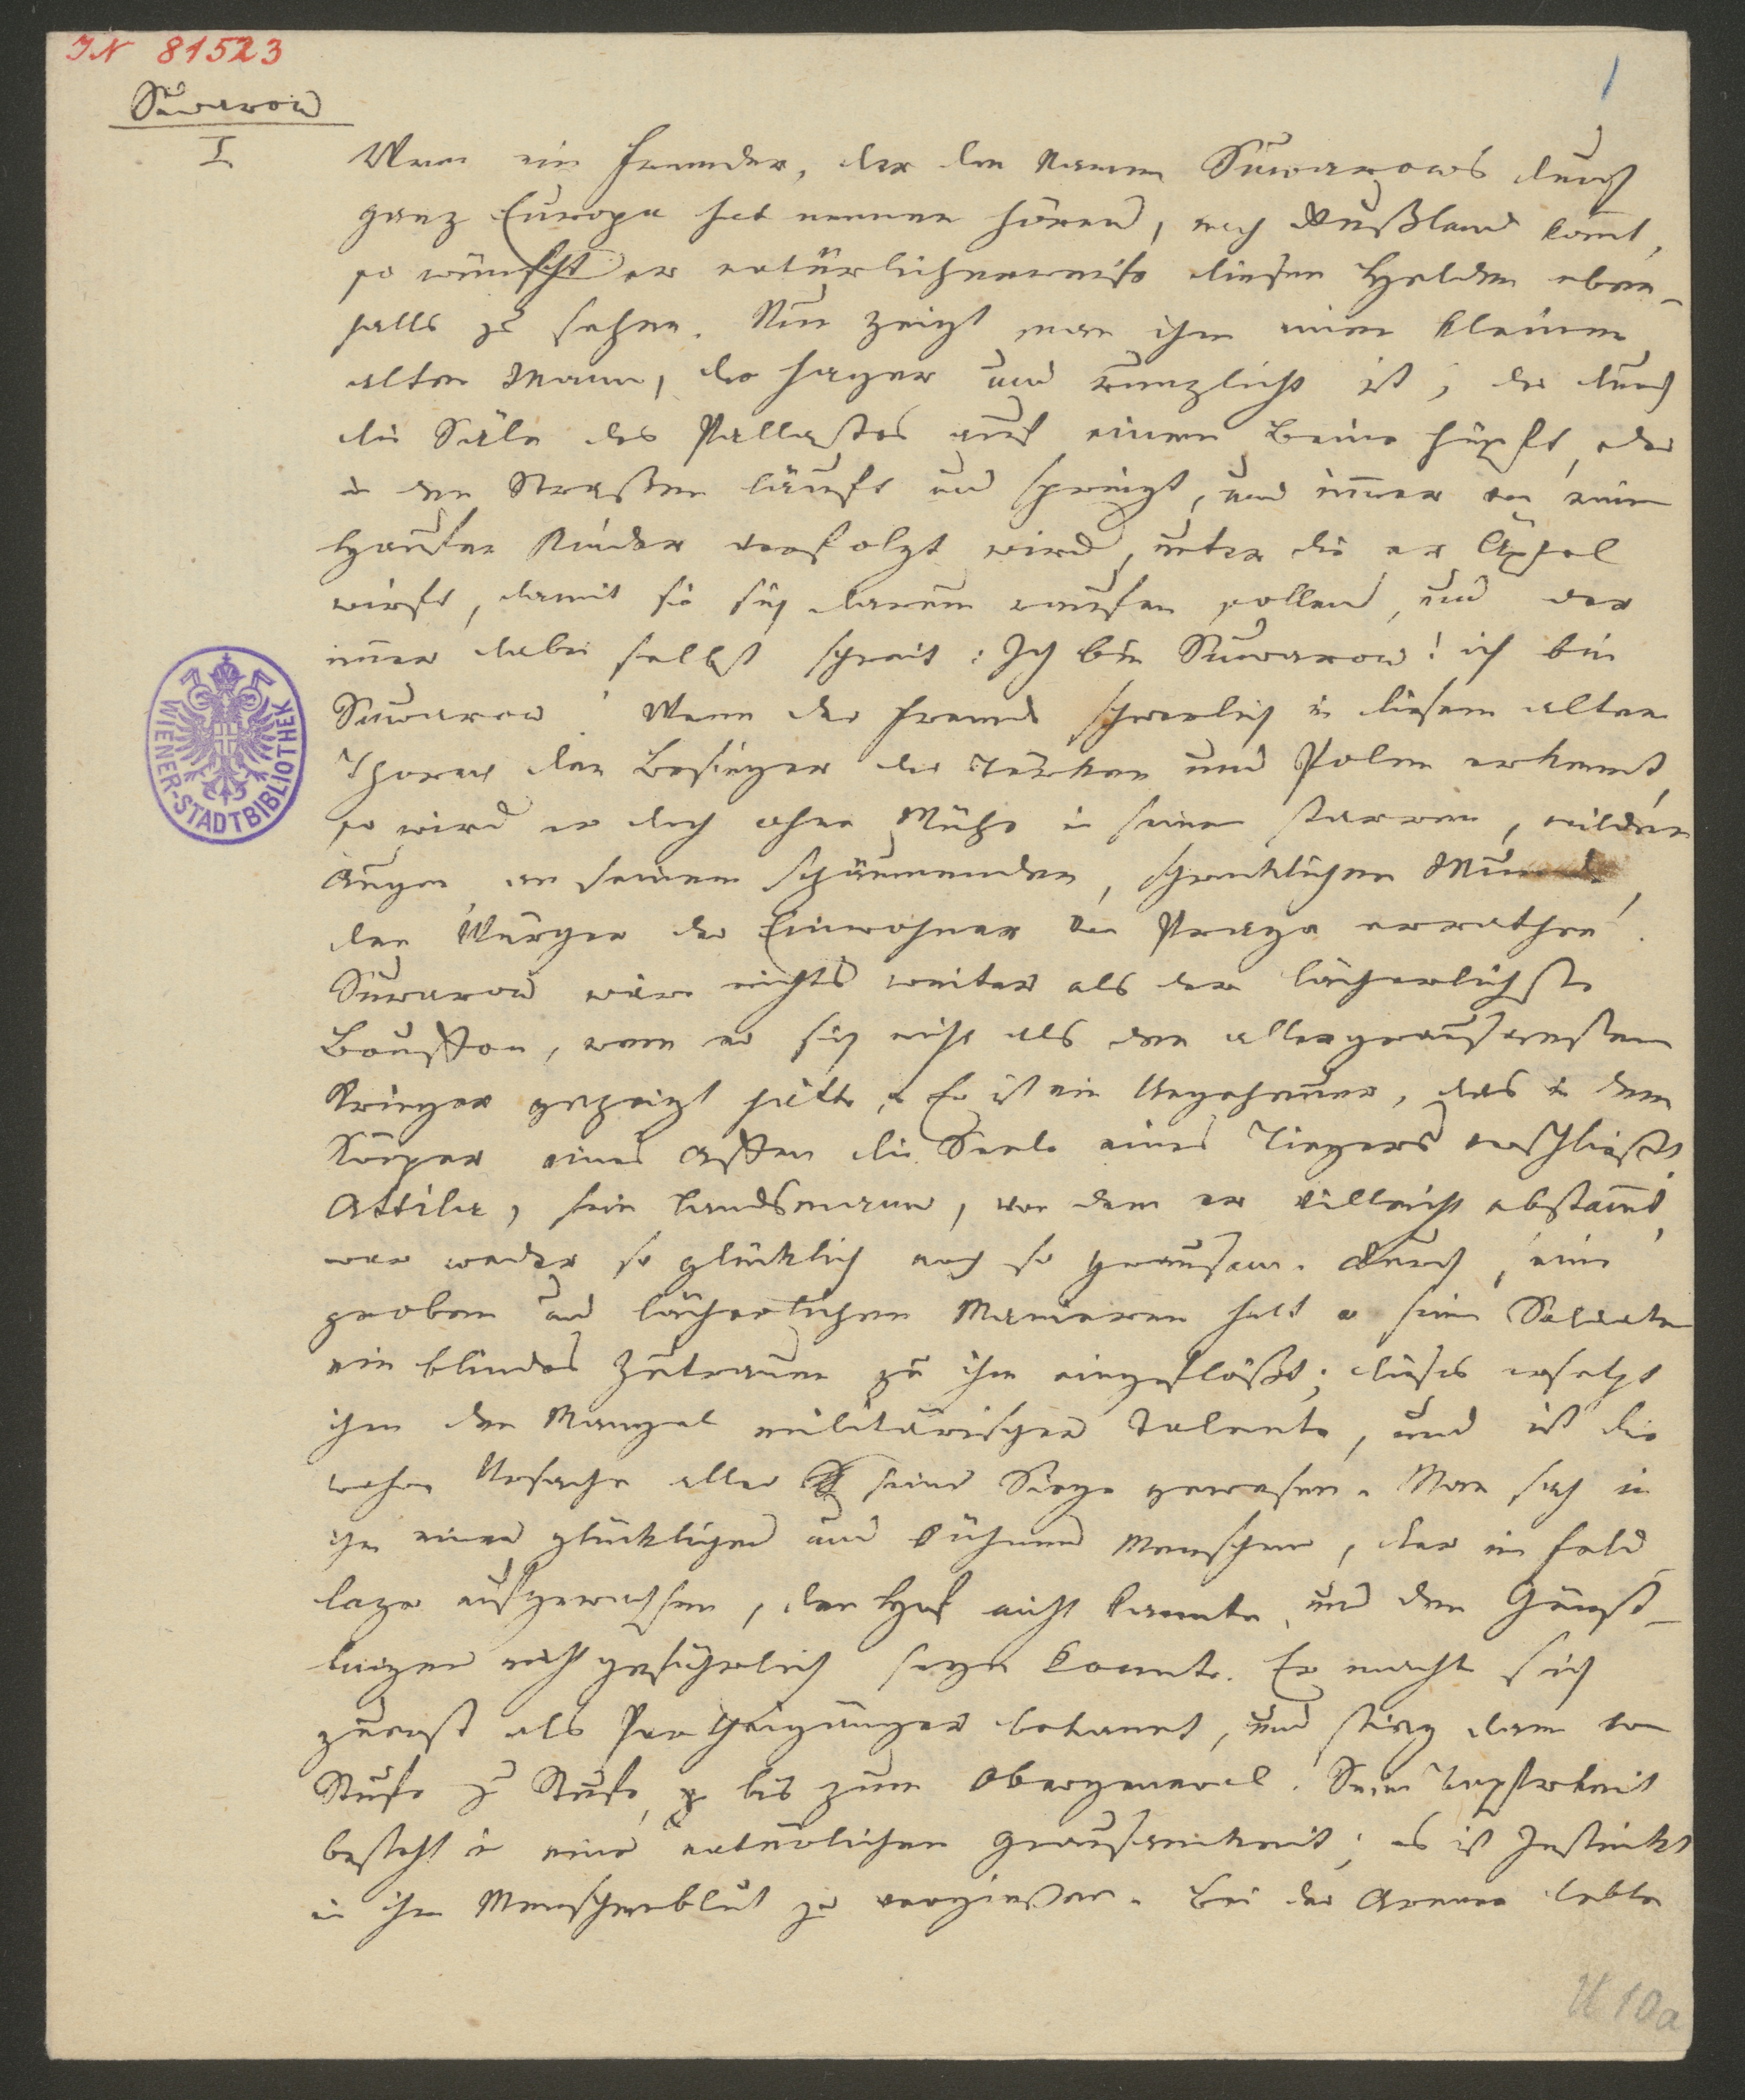 IN 81523
1
Suwarow
I
Wenn ein Fremder, der den Namen Suwarows durch
ganz Europa hat nennen hören, nach Rußland kom̄t,
so wünscht er natürlicherweise diesen Helden eben-
falls zu sehen. Nun zeigt man ihm einen kleinen
alten Mann, der hager und runzlicht ist; der durch
die Säle des Pallastes auf einem Beine hüpft, oder
in den Straßen läuft und springt, und im̄er von einem
Haufen Kinder verfolgt wird, unter die er Äpfel
wirft, damit sie sich darum raufen sollen, und der
im̄er dabei selbst schreit: Ich bin Suwarow! ich bin
Suwarow! Wenn der Fremde schwerlich in diesem alten
Thoren den Besieger der Türken und Polen erkennt,
so wird er doch ohne Mühe in seinen starren, wilden
Augen an seinem schäumenden, schrecklichen Munde,
den Würger der Einwohner von Praga errathen.
Suwarow wäre nichts weiter als der lächerlichste
Bouffon, wenn er sich nicht als den allergrausamsten
Krieger gezeigt hätte. Er ist ein Ungeheuer, das in dem
Körper eines Affen die Seele eines Tiegers verschließt.
Attila, sein Landsmann, von dem er villeicht abstam̄t,
war weder so glücklich noch so grausam. Durch seine
groben und lächerlichen Manieren hat er seinen Soldaten
ein blindes Zutrauen zu ihm eingeflößt; dieses ersetzt
ihm den Mangel militärischer Talente, und ist die
wahre Ursache aller seiner Siege gewesen. Man sah in
ihm einen glücklichen und kühnen Menschen, der im Feld-
lager aufgewachsen, den Hof nicht kannte und den Günst-
lingen nicht gefährlich seyn konnte. Er machte sich
zuerst als Partheigänger bekannt, und stieg dann von
Stufe zu Stufe, bis zum Obergeneral. Seine Tapferkeit
besteht in einer natürlichen Grausamkeit; es ist Instinkt
in ihm Menschenblut zu vergießen. Bei der Armee lebte
WIENER-STADTBIBLIOTHEK
U 10a